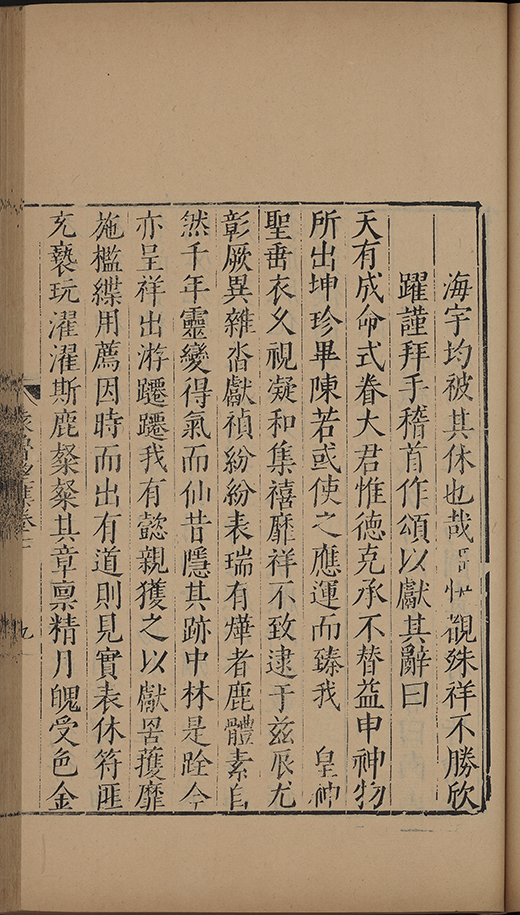 海宇均被其休也哉臣忭覩殊祥不勝欣
躍謹拜手稽首作頌以獻其辭曰
天有成命式眷大君惟德克承不替益申神物
所出坤珍畢陳若或使之應運而臻我　皇神
聖垂衣久視凝和集禧靡祥不致逮于兹辰尤
彰厥異雜沓獻禎紛紛表瑞有燁者鹿體素自
然千年靈變得氣而仙昔隱其跡中林是跧今
亦呈祥出游躚躚我有懿親獲之以獻罟擭靡
施檻緤用薦因時而出有道則見實表休符匪
充褻玩濯濯斯鹿粲粲其章稟精月魄受色金
九